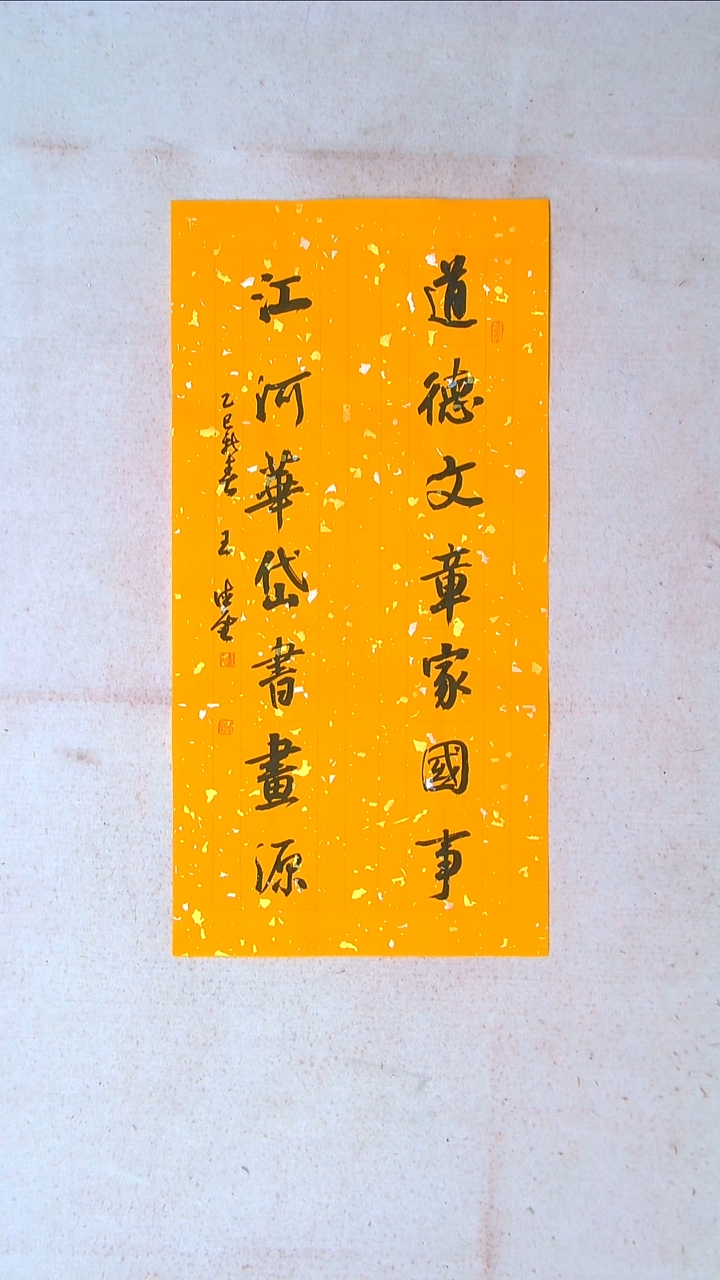 道德文章家國事
江河華岱書畫源
乙巳新春 王